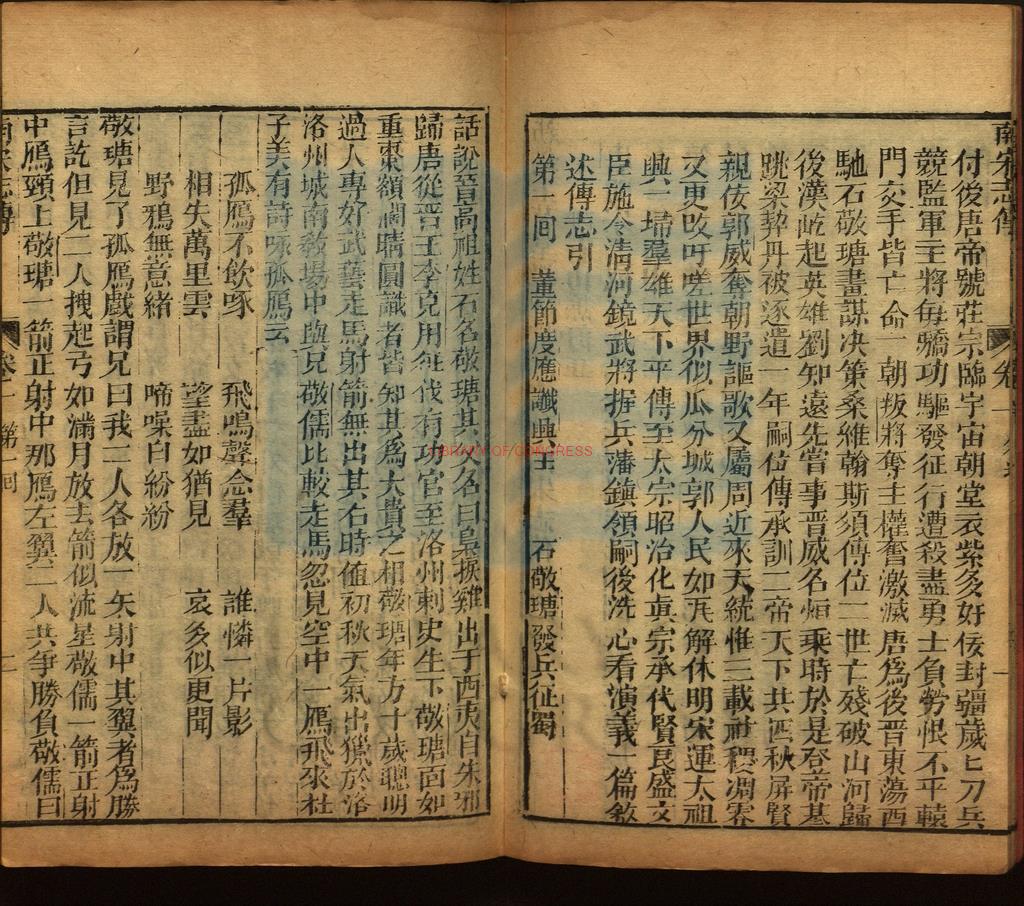 南宋志傳
卷一
付後唐帝號莊宗臨宇宙朝堂衣紫多好佞封疆歲匕刀兵
競監軍主將每驕功驅發征行遭殺盡勇士負勞恨不平轅
門交手皆亡命一朝叛將奪主權奮激滅唐爲後晋東蕩西
馳石敬瑭畫謀決策桑維翰斯須傳位二世亡殘破山河歸
後漢屹起英雄劉知遠先嘗事晋威名烜乘時於是登帝基
跳梁契丹被逐遣一年嗣位傳承訓二帝天下共四秋屏賢
親佞郭威奪朝野謳歌又屬周近來天統惟三載社稷凋零
又更改吁嗟世界似瓜分城郭人民如瓦解休明宋運太祖
興一埽羣雄天下平傳至太宗昭治化眞宗承代賢良盛文
臣施令淸河鏡武將握兵藩鎮領嗣後洗心看演義一篇敘
述傳志引
第一回 董節度應讖興王 石敬瑭發兵征蜀
LIBRARY OF CONGRESS
話說晋高祖姓石名敬瑭其父名曰臬捩雞出于西夷自朱邪
歸唐從晋王李克用征伐有功官至洛州刺史生下敬瑭面如
重棗額闊睛圓識者皆知其爲大貴之相敬瑭年方十歲聰明
過人專好武藝走馬射箭無出其右時値初秋天氣出獵於洛
洛州城南敎場中與兄敬儒比較走馬忽見空中一鴈飛來杜
子美有詩咏孤鴈云
孤鴈不飮啄 飛鳴聲念羣 誰憐一片影
相失萬里雲 望盡如猶見 哀多似更聞
野鴉無意緒 啼噪自紛紛
敬瑭見了孤鴈戲謂兄曰我二人各放一矢射中其翼者爲勝
言訖但見二人拽起弓如滿月放去箭似流星敬儒一箭正射
中鴈頸上敬瑭一箭正射中那鴈左翼二人共爭勝負敬儒曰
南宋志傳
卷一 第一回